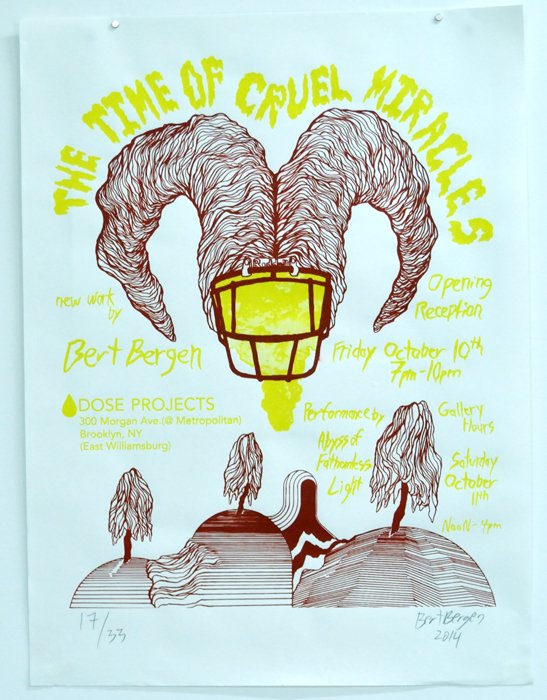 THE TIME OF CRUEL MIRACLES
new work
by
Bert Bergen
Opening
Reception
Friday October 10th
7pm-10pm
DOSE PROJECTS
300 Morgan Ave.(@ Metropolitan)
Brooklyn, NY
(East Williamsburg)
Performance by
Abyss of
Fathomless
Light
Gallery
Hours
Saturday
October
11th
NooN-4pm
17/33
Bert Bergen
2014